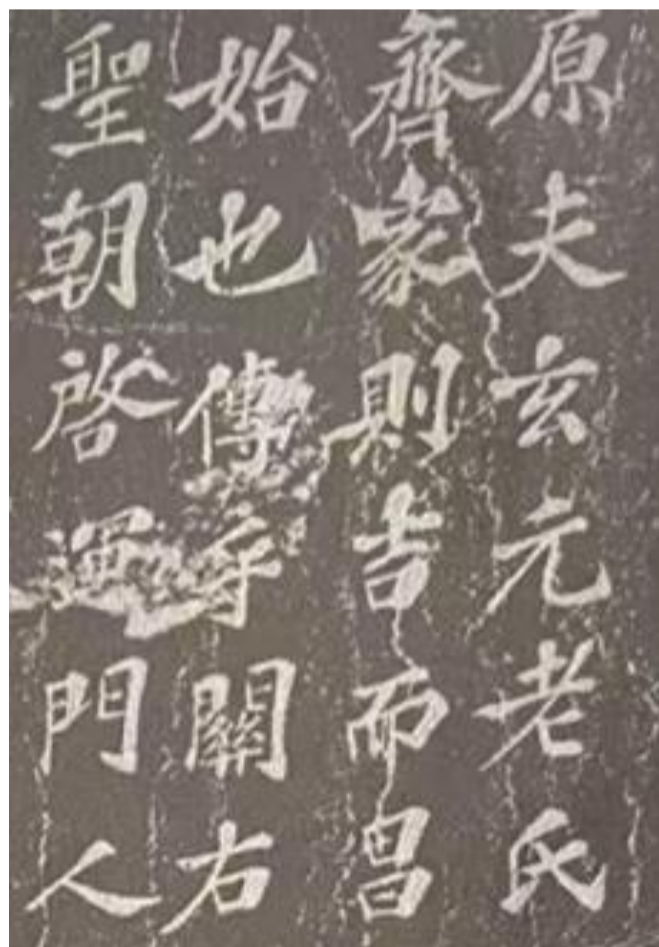 原夫玄元老氏
齊家則吉而昌
始也傳乎關右
聖朝啓運門人